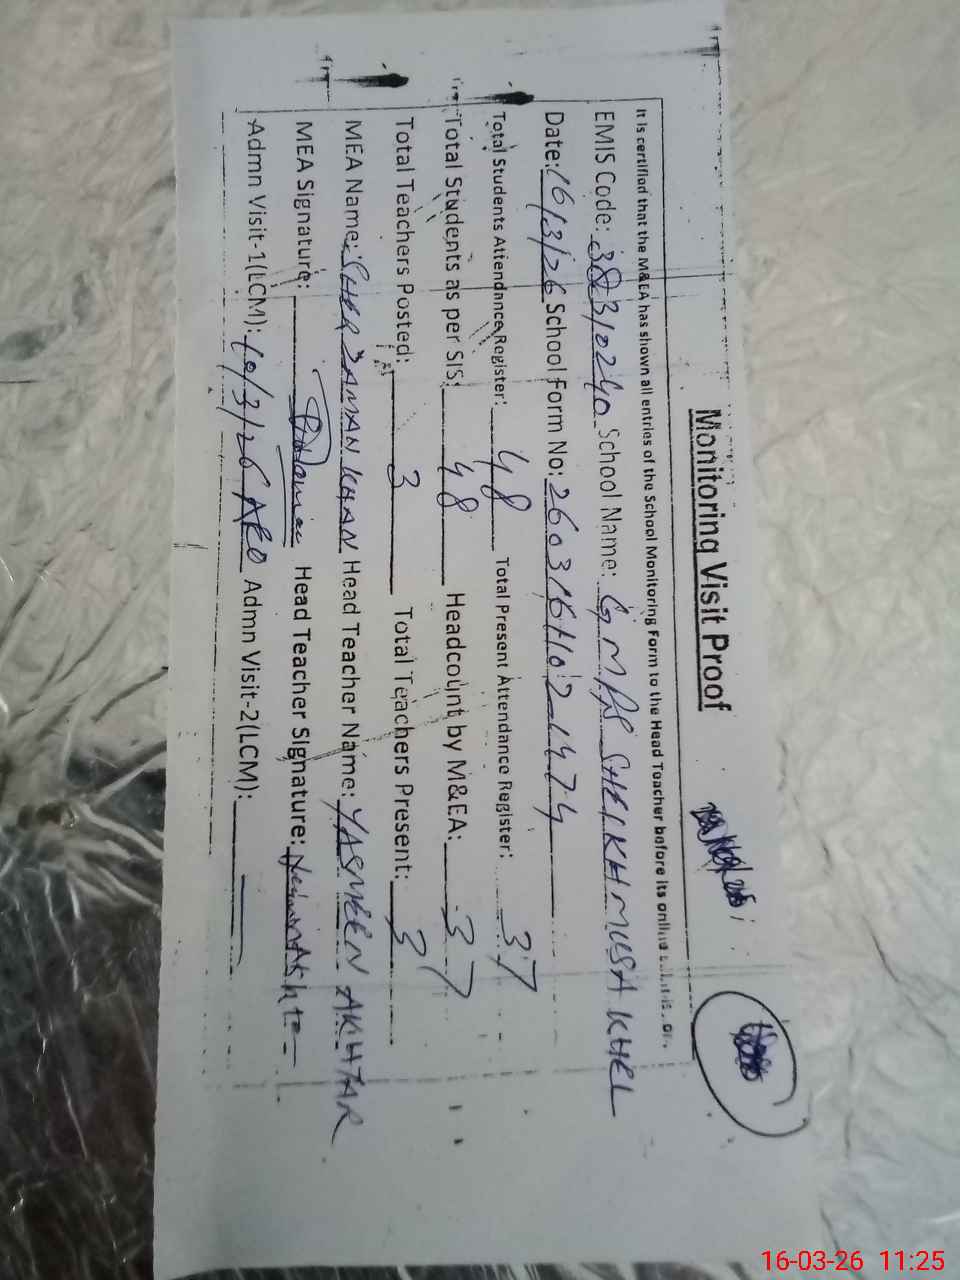 Monitoring Visit Proof
It is certified that the M&EA has shown all entries of the School Monitoring Form to the Head Teacher before its online
EMIS Code: 38310240 School Name: GMPS SHEIKH MUSA KHEL
Date: 16/3/26 School Form No:
Total Students Attendance Register: 48 Total Present Attendance Register: 37
Total Students as per SIS: 48 Headcount by M&EA: 37
Total Teachers Posted: 3 Total Teachers Present: 3
MEA Name: SHER ZAMAN KHAN Head Teacher Name: YASMEEN AKHTAR
MEA Signature: Head Teacher Signature:
Admn Visit-1(LCM): 10/3/26 Admn Visit-2(LCM):
16-03-26 11:25